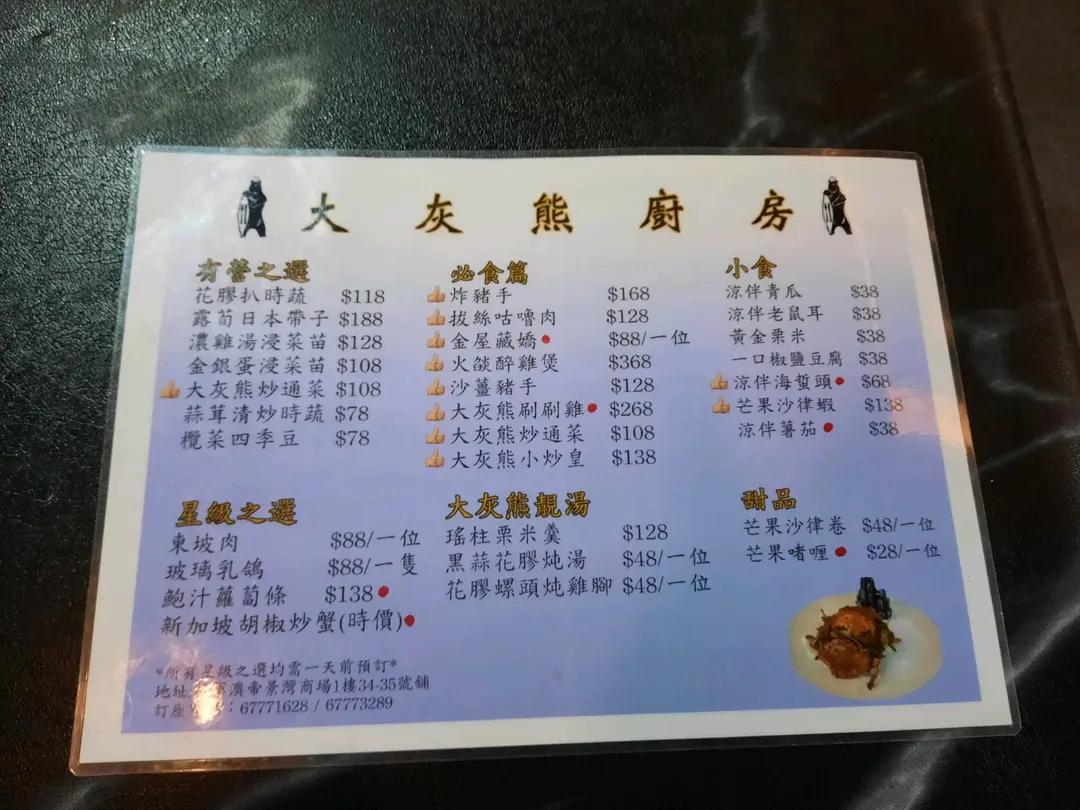 大灰熊廚房
有營之選
花膠扒時蔬 $118
露荀日本帶子 $188
濃雞湯浸菜苗 $128
金銀蛋浸菜苗 $108
大灰熊炒通菜 $108
蒜茸清炒時蔬 $78
欖菜四季豆 $78
必食篇
炸豬手 $168
拔絲咕嚕肉 $128
金屋藏嬌 $88/一位
火燄醉雞煲 $368
沙薑豬手 $128
大灰熊刷刷雞 $268
大灰熊炒通菜 $108
大灰熊小炒皇 $138
小食
涼伴青瓜 $38
涼伴老鼠耳 $38
黃金粟米 $38
一口椒鹽豆腐 $38
涼伴海蜇頭 $68
芒果沙律蝦 $138
涼伴薯茄 $38
星級之選
東坡肉 $88/一位
玻璃乳鴿 $88/一隻
鮑汁蘿蔔條 $138
新加坡胡椒炒蟹(時價)
大灰熊靚湯
瑤柱粟米羹 $128
黑蒜花膠炖湯 $48/一位
花膠螺頭炖雞腳 $48/一位
甜品
芒果沙律卷 $48/一位
芒果啫喱 $28/一位
*所有星級之選均需一天前預訂*
地址 澳帝景灣商場1樓34-35號舖
訂座 : 67771628 / 67773289